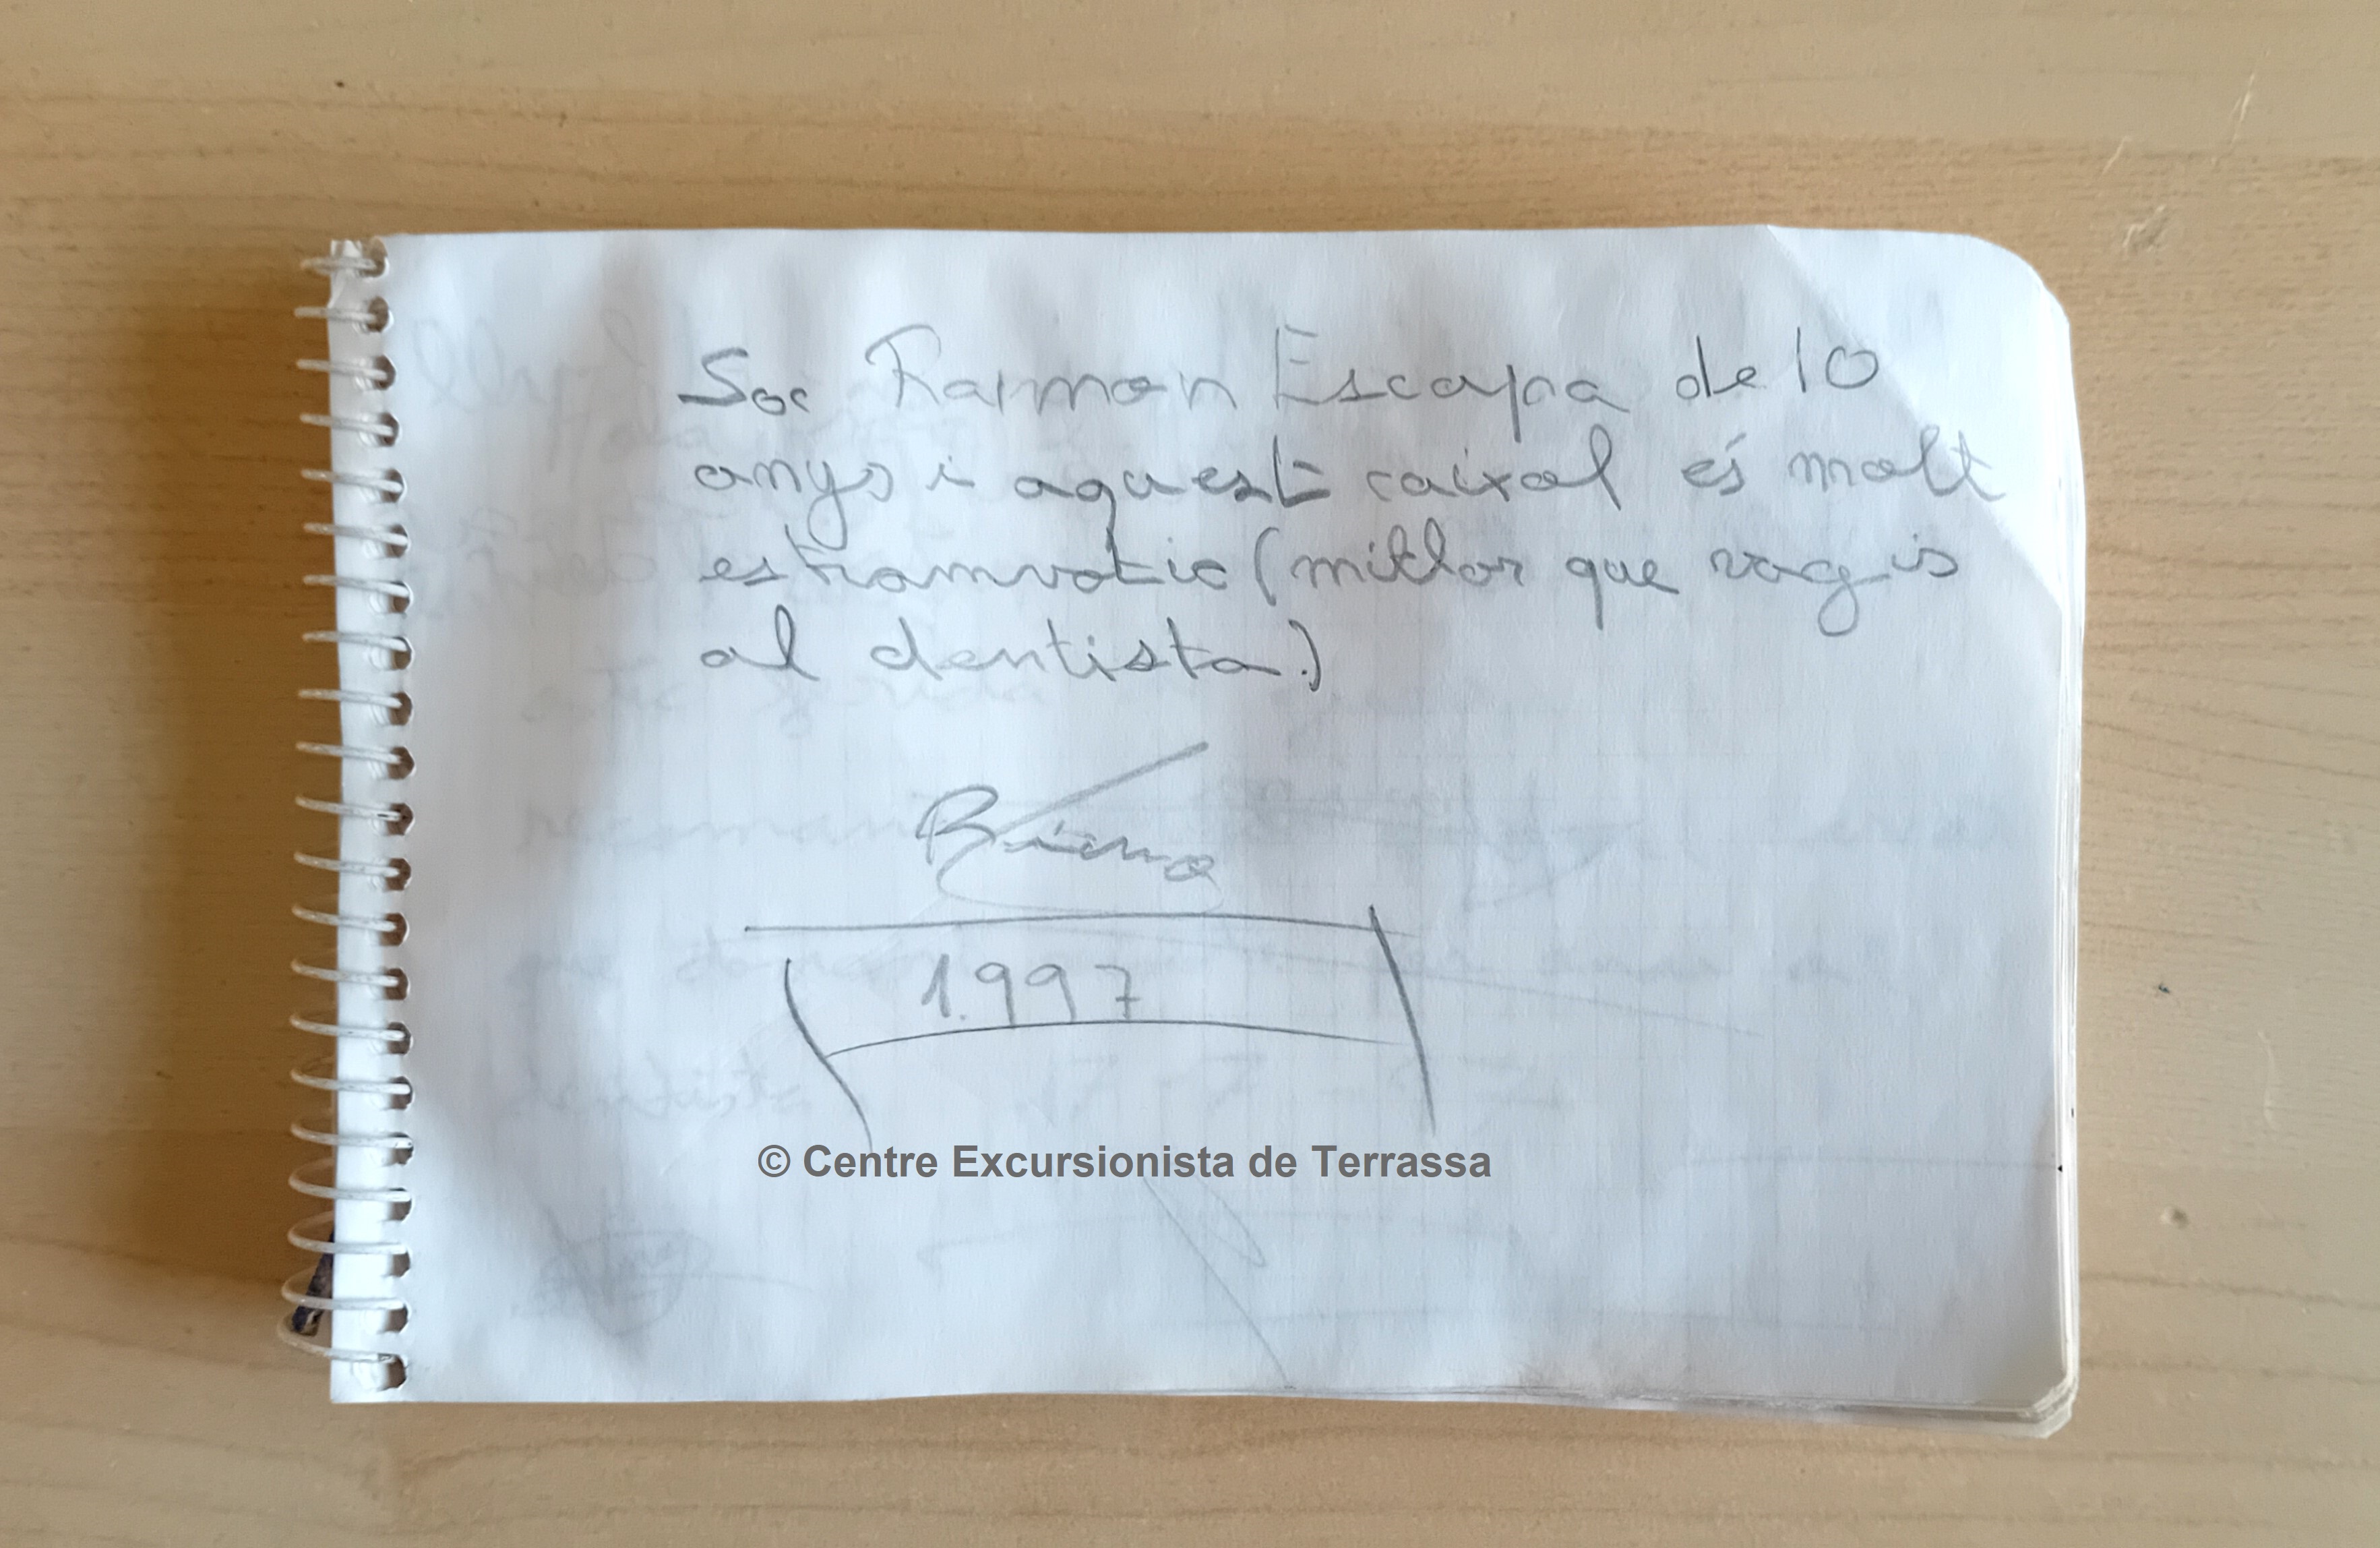 Soc Ramon Escapa de 10
anys i aquest caixal és molt
estramvotic (millor que vagis
al dentista.)
1.997
© Centre Excursionista de Terrassa